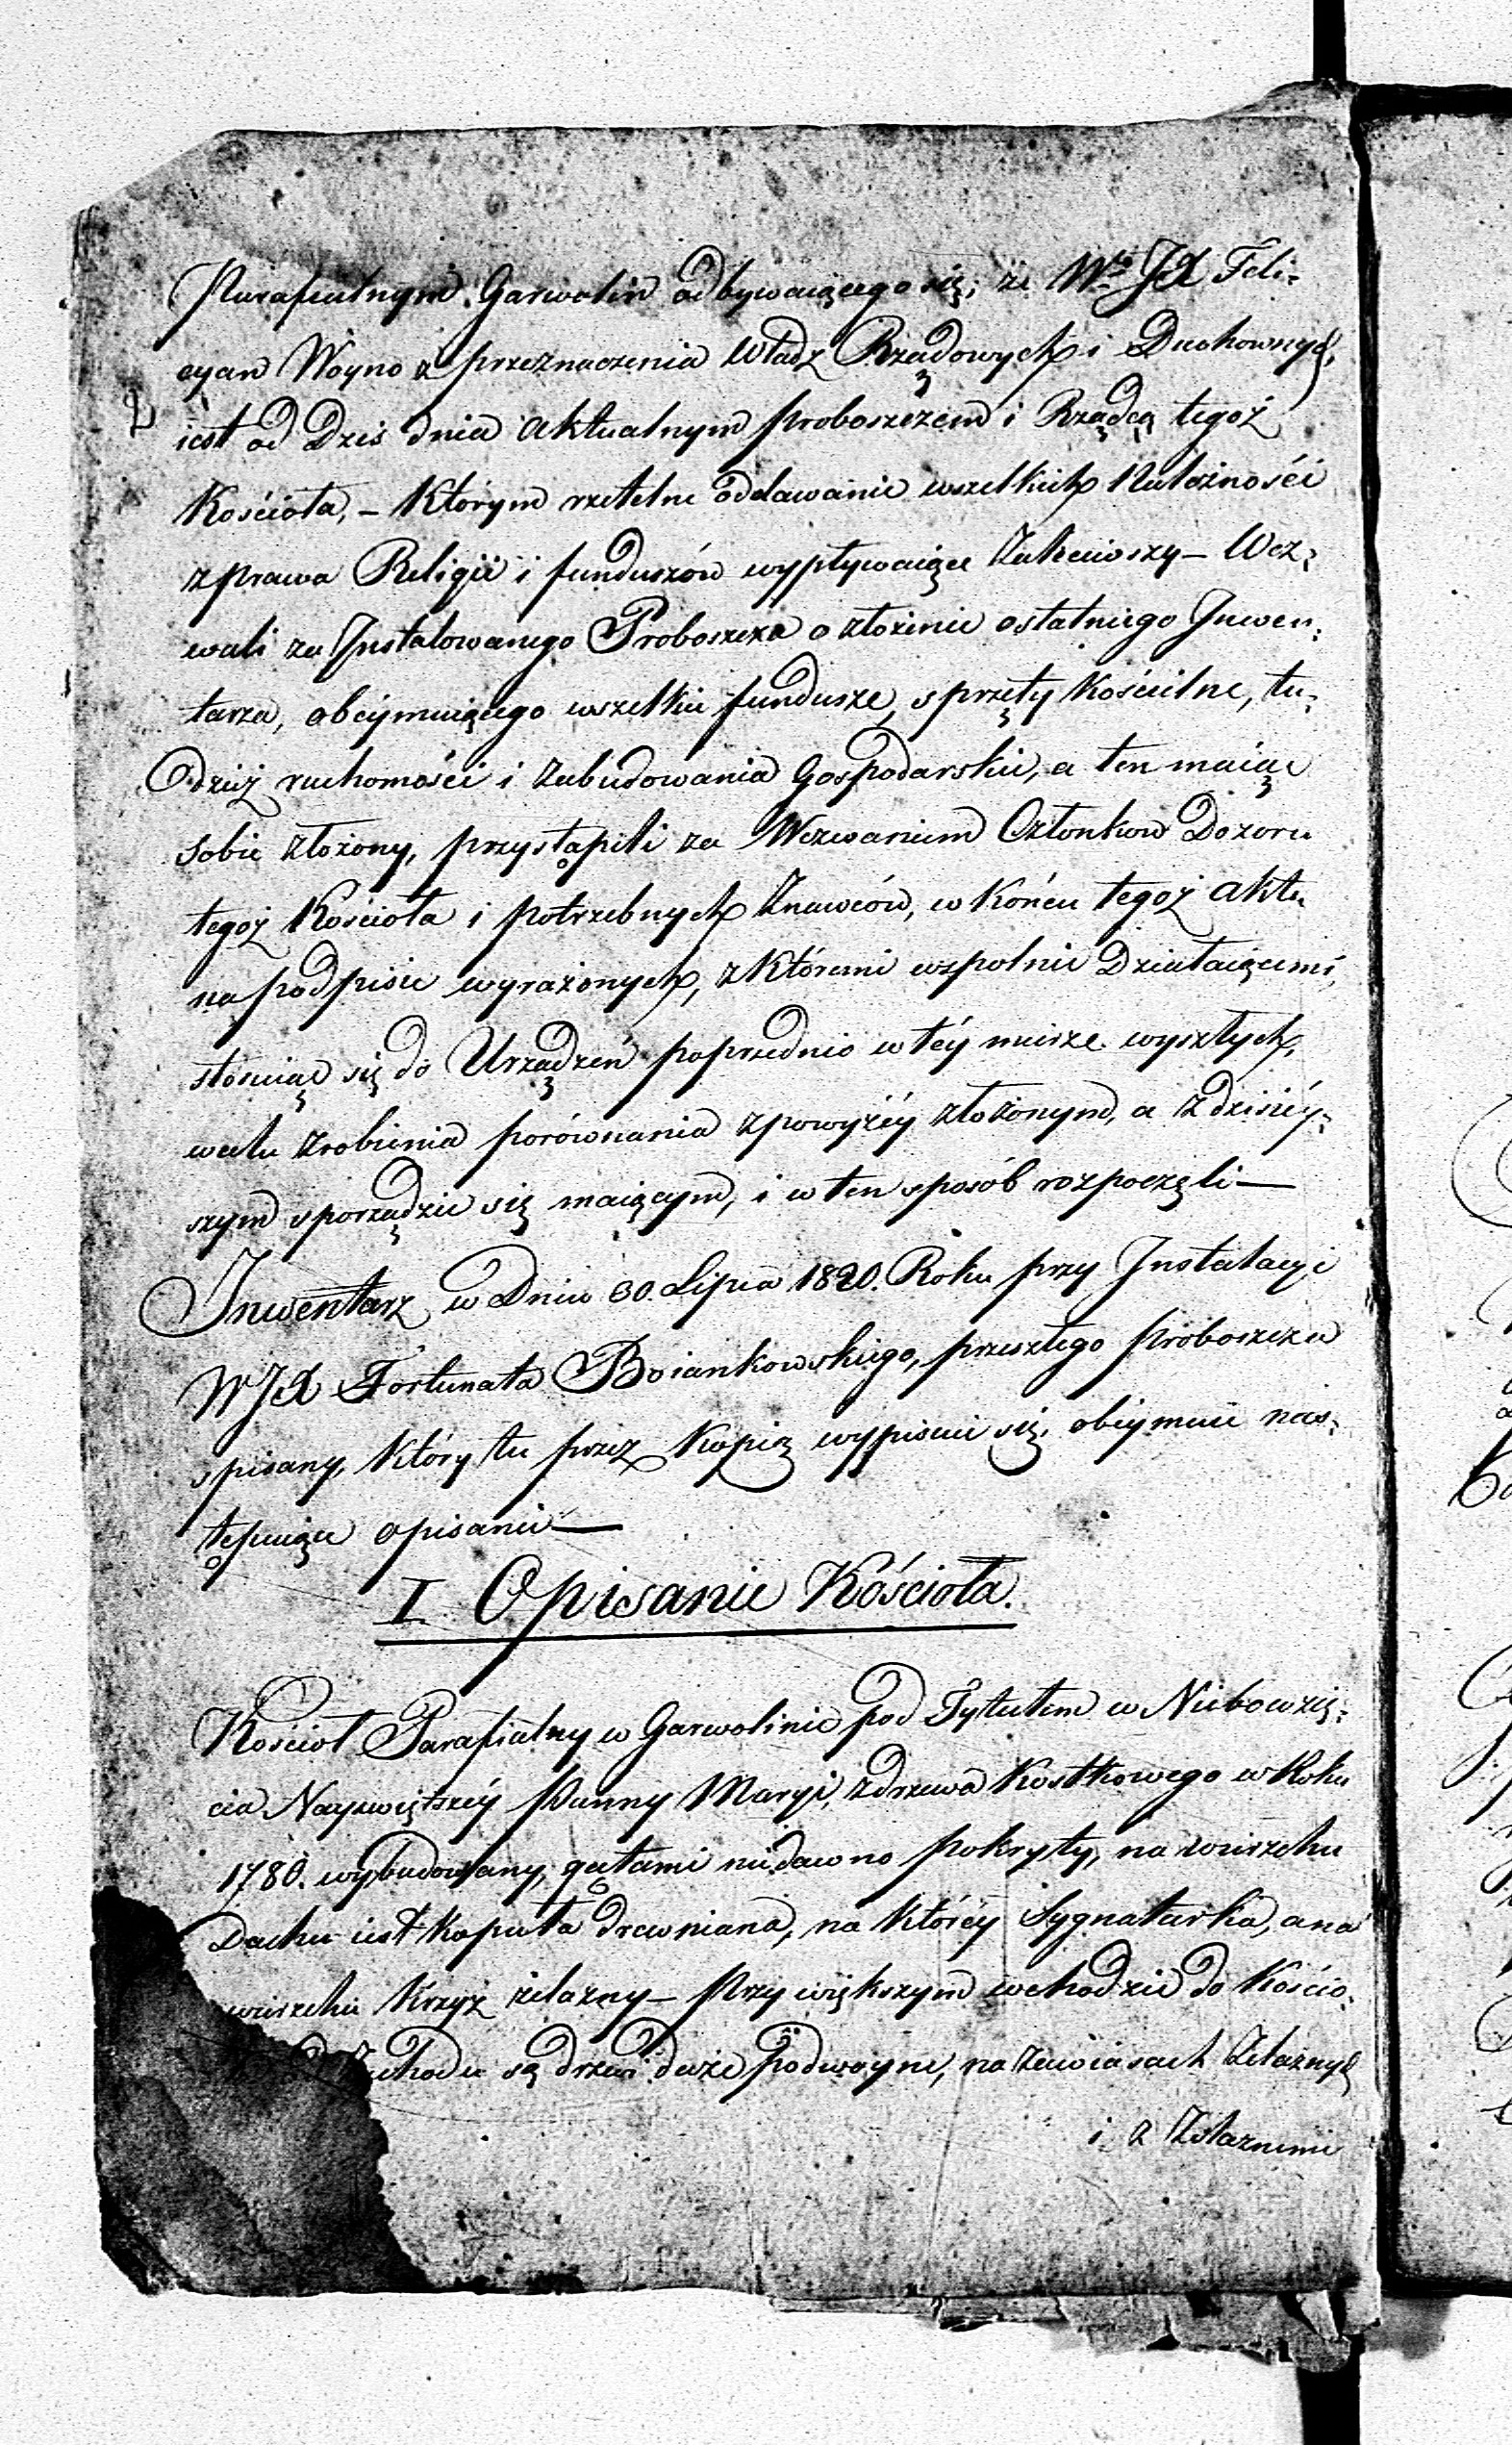 Parafialnym Garwolin odbywaiącego się; że Wy JX Feli-
cyan Woyno z przeznaczenia Władz Rządowych i Duchownych,
iest od Dziś dnia aktualnym Proboszczem i Rządcą tegoż
Kościoła, – Którym rzetelne oddawanie wszelkich Należności
z prawa Religii i funduszów wypływaiące Zaleciwszy – Wez-
wali za Instalowanego Proboszcza o złożenie ostatniego Inwen-
tarza, obeymuiącego wszelkie fundusze, sprzęty Kościelne, tu-
dzież ruchomości i Zabudowania Gospodarskie, a ten maiąc
sobie złożony, przystąpili za Wezwaniem Członkow Dozoru
tegoż Kościoła i potrzebnych Znawców, w Końcu tegoż aktu
na podpisie wyrażonych, z Któremi wspolnie Działaiącemi,
stosuiąc się do Urządzeń poprzednio w téy mierze wyszłych,
welu zrobienia porównania z powyżéy złożonym, a z dzisiéy-
szym sporządzić się maiącym, i w ten sposób rozpoczęli —
Inwentarz w Dniu 30. Lipca 1820. Roku przy Instalacyi
WJX Fortunata Boiankowskiego, przeszłego Proboszcza
spisany, Który tu przez Kopią wypisuie się, obeymuie nas-
tępuiące opisanie —
I Opisanie Kościoła.
Kościoł Parafialny w Garwolinie pod Tytułem w Niebowzię-
cia Nayświętszéy Panny Maryi, z drzewa Kostkowego w Roku
1780. wybudowany, gątami niedawno pokryty, na wierzchu
Dachu iest kopuła drewniana, na któréy Sygnaturka, a na
wierzchu Krzyż żelazny – Przy większym wchodzie do Kościo-
Zachodu są drzwi duże podwoyne, na zawiasach Żelaznych
i z Żelaznemi